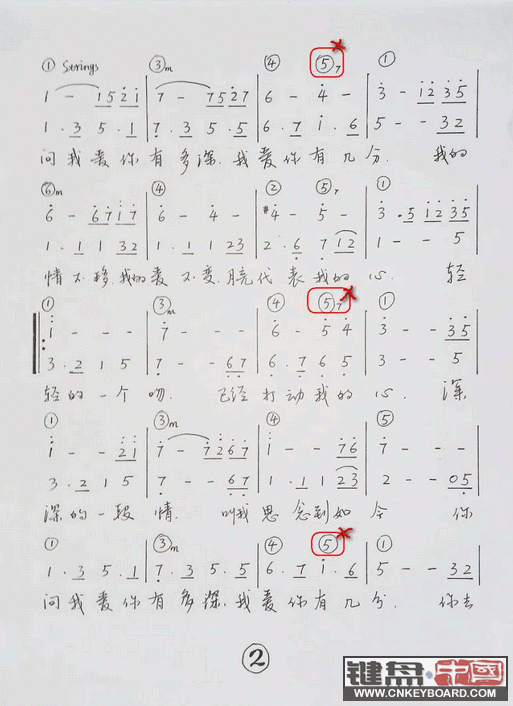 ① Strings ③m ④ ⑤7 ①
1 - 1 5 2 1 7 - 7 5 2 7 6 - 4 - 3 - 1 2 3 5
1 · 3 5 · 1 7 · 3 5 · 5 6 · 7 1 · 6 5 - - 3 2
问我爱你有多深.我爱你有几分. 我的
⑥m ④ ② ⑤7 ①
6 - 6 7 1 7 6 - 4 - #4 - 5 - 3 · 5 1 2 3 5
1 · 1 1 3 2 1 · 1 1 2 3 2 · 6 7 1 2 1 - - 5
情不移.我的爱不变.月亮代表我的心. 轻
① ③m ④ ⑤7 ①
1 - - - 7 - - - 6 - 5 4 3 - - 3 5
3 · 2 1 5 7 - - 6 7 6 · 7 6 5 3 - - 5
轻的一个吻. 已经打动我的心. 深
① ③m ④ ⑤
1 - - 2 1 7 - 7 2 6 7 1 - - 7 6 7 - - -
3 · 2 1 5 7 - - 6 7 1 · 1 1 2 3 2 - - 0 5
深的一段情. 叫我思念到如今 你
① ③m ④ ⑤ ①
1 · 3 5 · 1 7 · 3 5 · 5 6 · 7 1 · 6 5 - - 3 2
问我爱你有多深.我爱你有几分. 你去
2
键盘·中國
WWW.CNKEYBOARD.COM